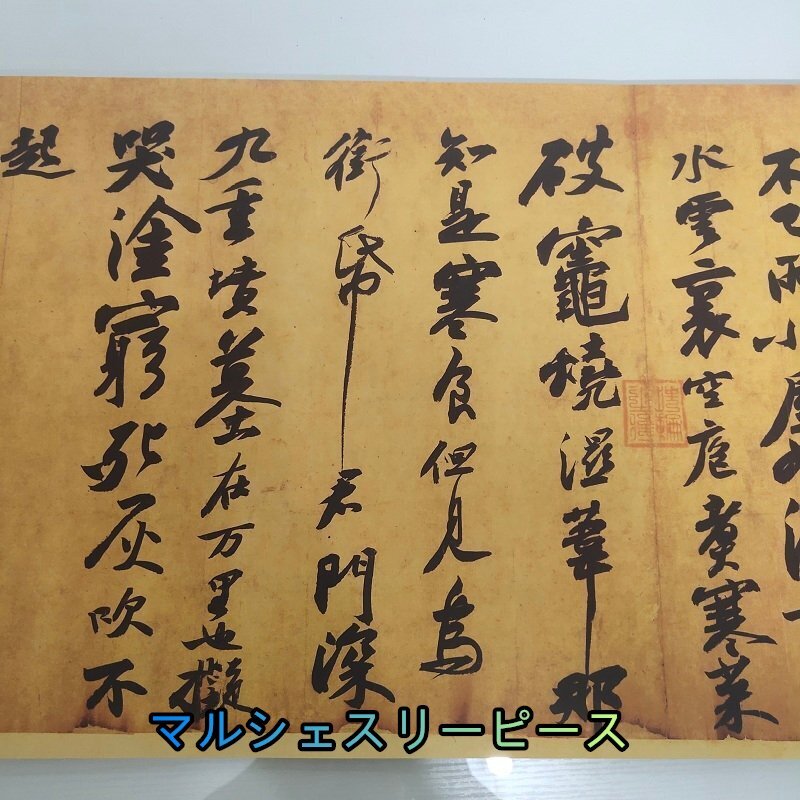 不已雨小屋如漁
水雲裏空庖煮寒菜
破竈燒溼葦那
知是寒食但見烏
銜帋君門深
九重墳墓在万里也擬
哭塗窮死灰吹不
起
マルシェスリーピース